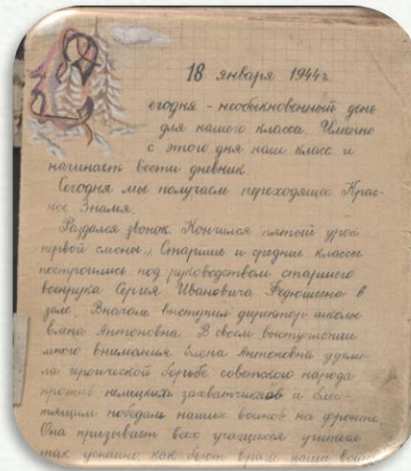 18 января 1944 г.
Сегодня - необыкновенный день
для нашего класса. Имено
с этого дня наш класс и
начинает вести дневник.
Сегодня мы получаем переходящее Крас-
ное Знамя.
Раздался звонок. Кончился пятый урок
первой смены. Старшие и средние классы
построились под руководством старшего
военрука Сергея Ивановича Федюшина в
зале. Вначале выступил директор школы
Елена Антоновна. В своем выступлении
много внимания Елена Антоновна удели-
ла героической борьбе советского народа
против немецких захватчиков и блес-
тящим победам наших воинов на фронте.
Она призывает всех учащихся учиться
так успешно, как бьют врага наши